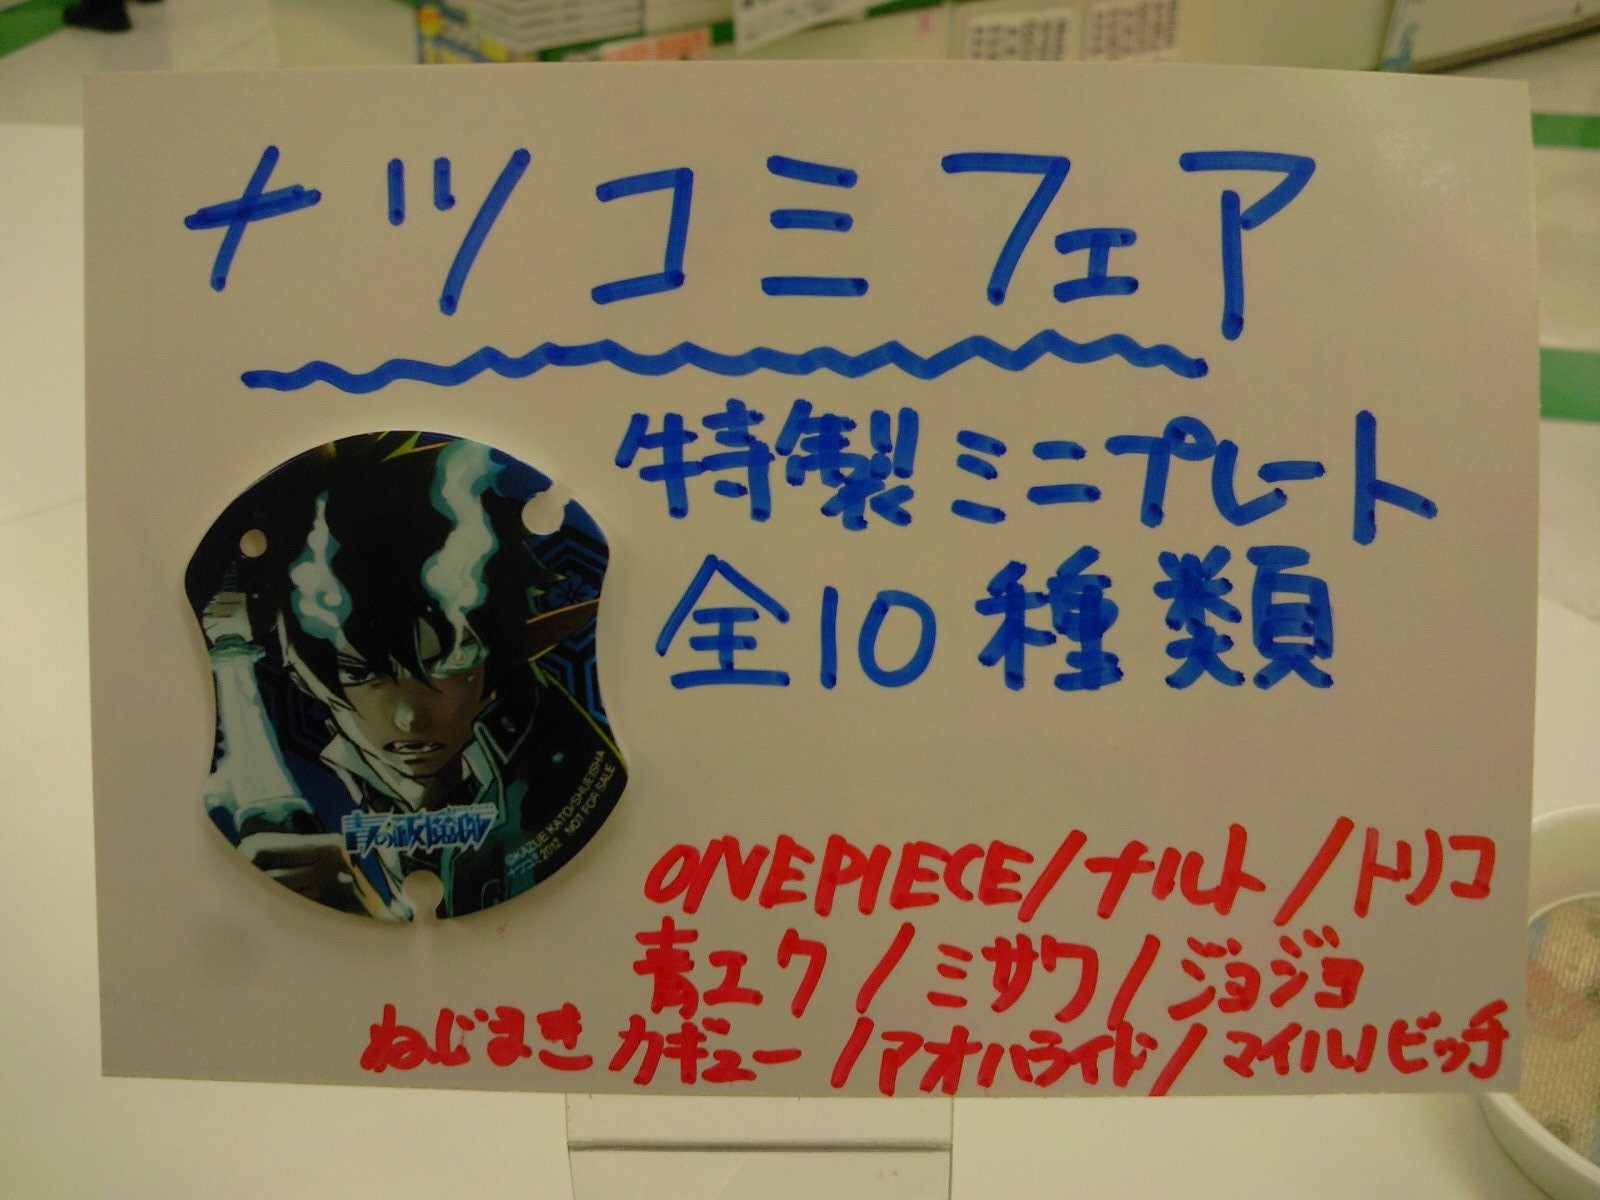 ナツコミフェア
特製ミニプレート
全10種類
青の祓魔師
©KAZUE KATO/SHUEISHA
2012 NOT FOR SALE
ONEPIECE/ナルト/トリコ
青エク/ミサワ/ジョジョ
ねじまきカギュー/アオハライド/マイルノビッチ